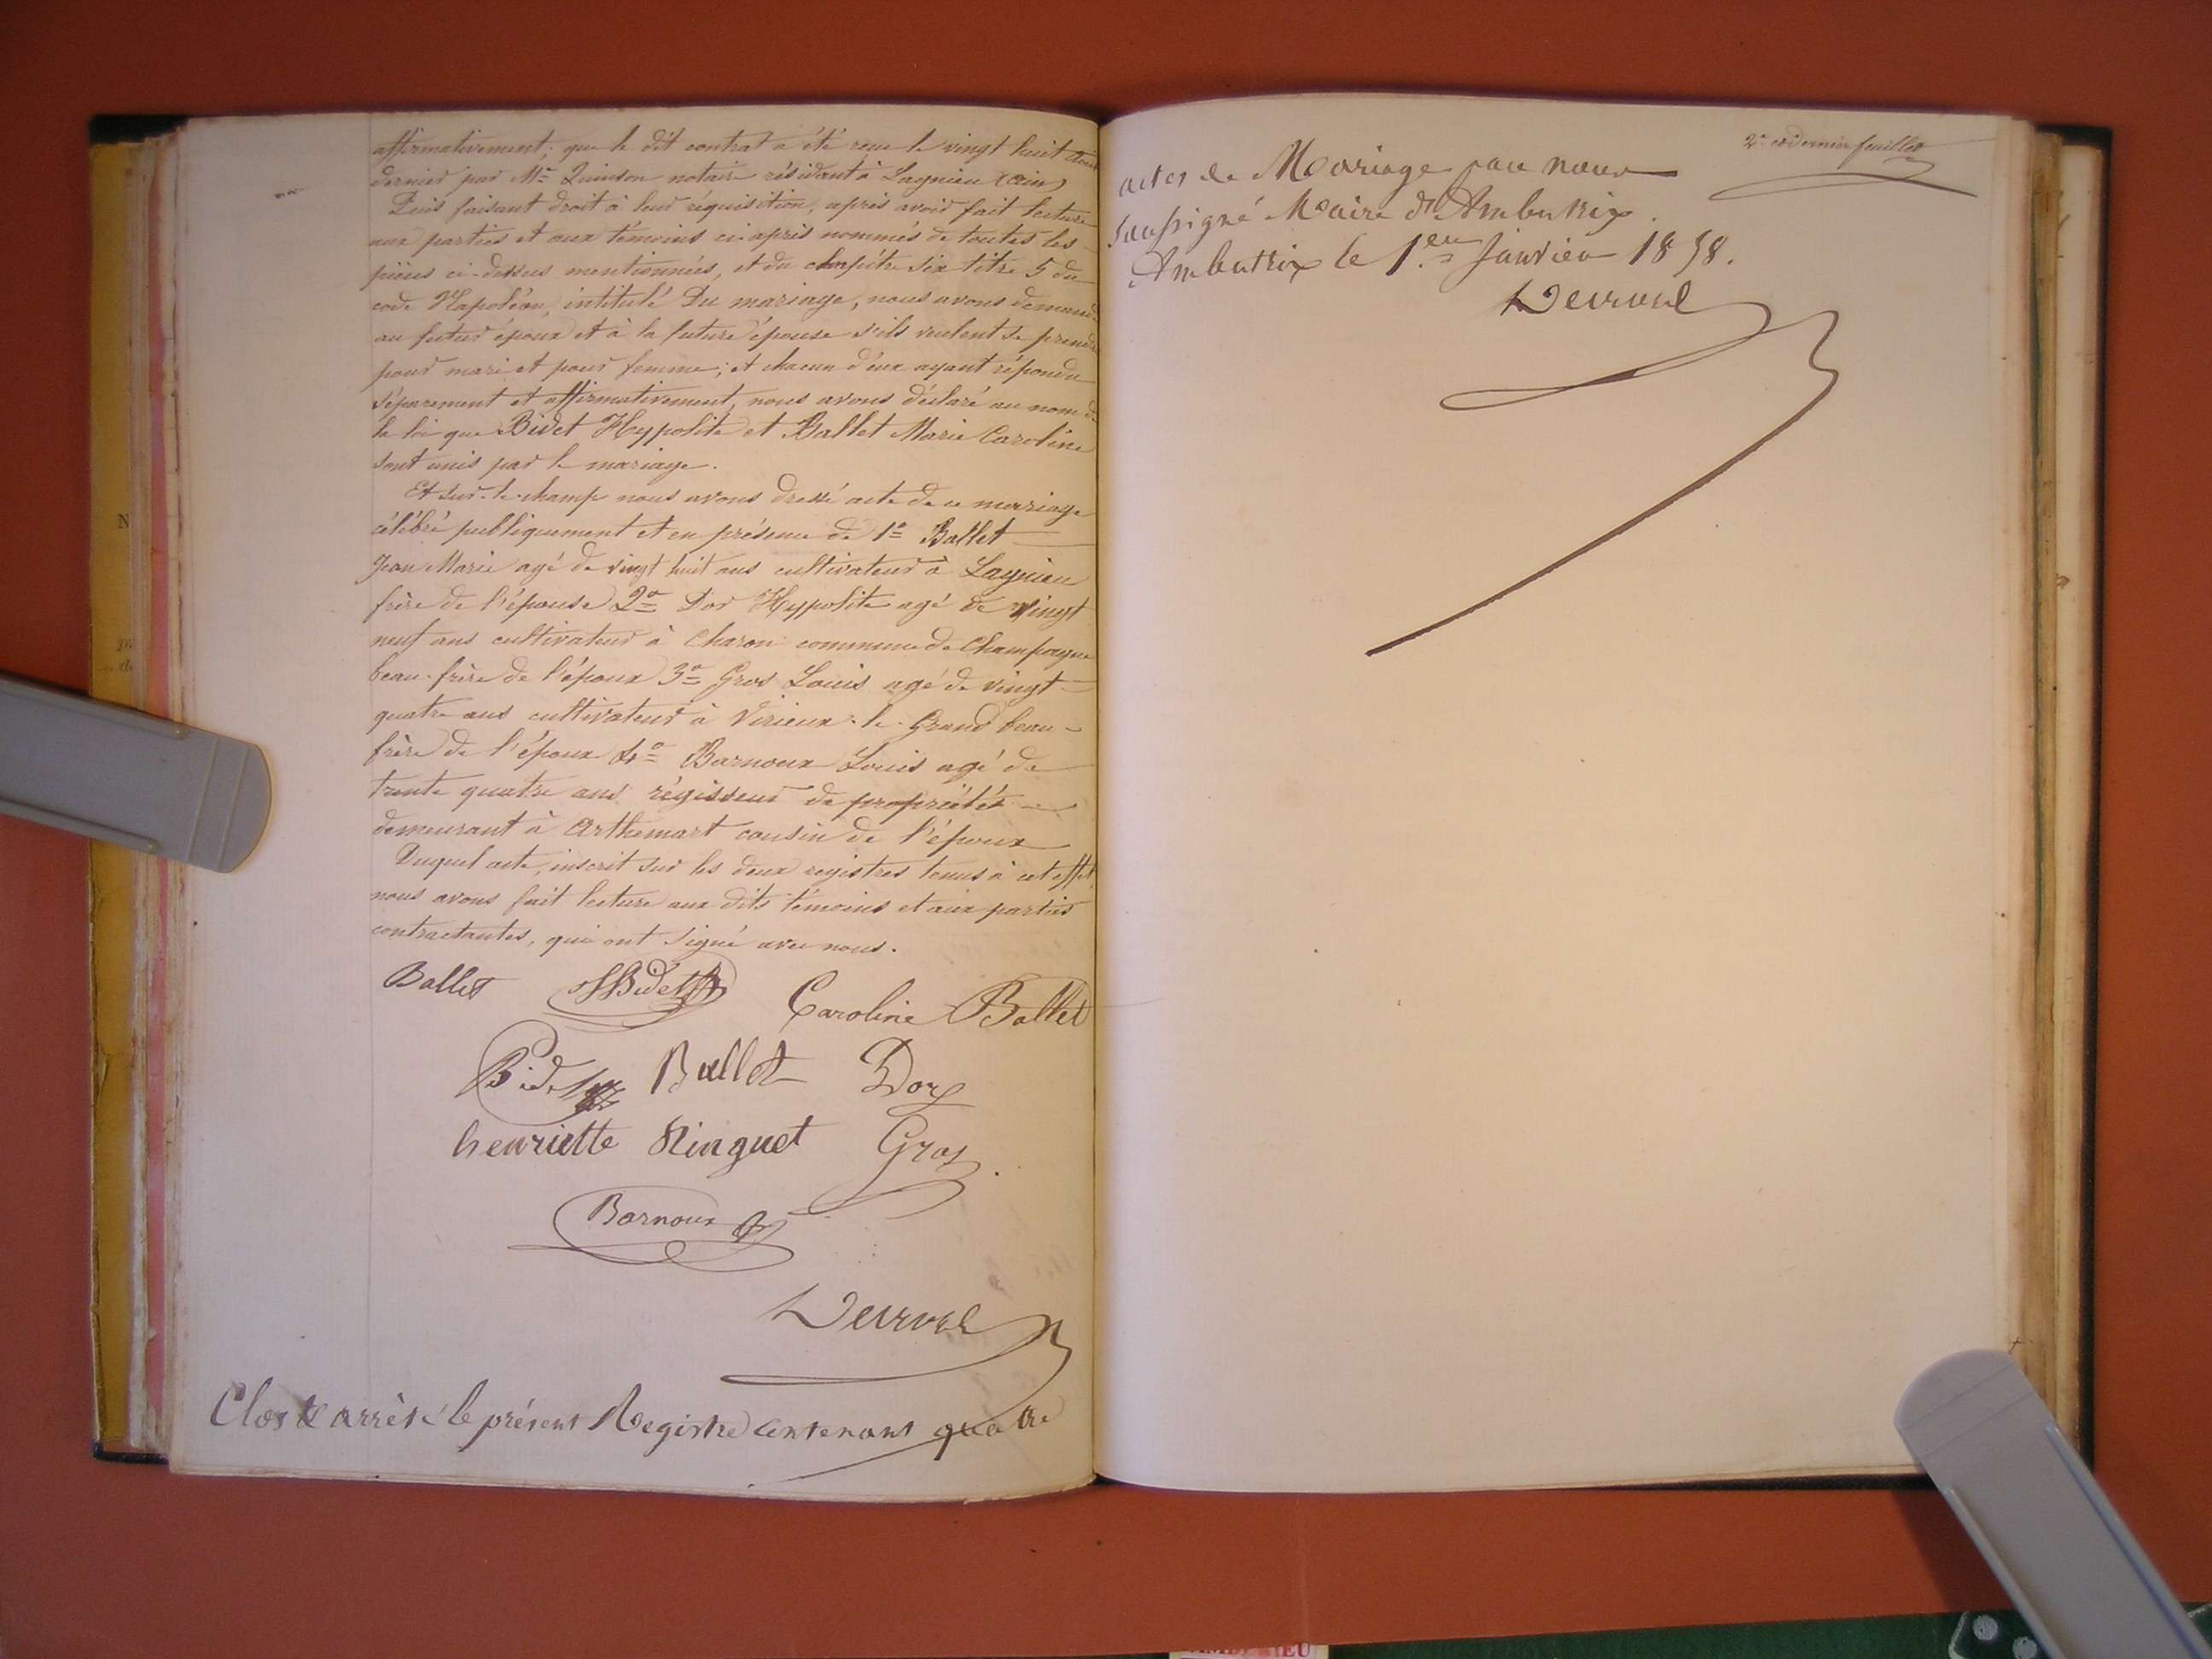 affirmativement; que le dit contrat a été reçu le vingt huit aout
dernier par Me Quinson notaire résidant à Lagnieu (ain)
Puis faisant droit à leur réquisition, après avoir fait lecture
aux parties et aux témoins ci-après nommés de toutes les
pièces ci-dessus mentionnées, et du chapitre six titre 5 du
code Napoléon, intitulé Du mariage, nous avons demandé
au futur époux et à la future épouse s'ils veulent se prendre
pour mari et pour femme; et chacun d'eux ayant répondu
séparement et affirmativement, nous avons déclaré au nom de
la loi que Bidet Hyppolite et Ballet Marie Caroline
sont unis par le mariage.
Et sur-le-champ nous avons dressé acte de ce mariage
célébré publiquement et en présence de 1o Ballet
Jean Marie agé de vingt huit ans cultivateur à Lagnieu
frère de l'épouse 2o Dor Hyppolite agé de vingt
neuf ans cultivateur à Charon commune de Champagne
beau-frère de l'époux 3o Gros Louis agé de vingt
quatre ans cultivateur à Virieux-le-Grand beau-
frère de l'époux 4o Barnoux Louis agé de
trente quatre ans régisseur de propriétés
demeurant à Arthemart cousin de l'époux
Duquel acte, inscrit sur les deux registres tenus à cet effet,
nous avons fait lecture aux dits témoins et aux parties
contractantes, qui ont signé avec nous.
Ballet HBidet Caroline Ballet
Bidet Ballet Dor
henriette Ringuet Gros
Barnoux
Clos & arrêté le présent Registre contenant quatre
2e et dernier feuillet
actes de Mariage par nous
soussigné Maire d'Ambutrix.
Ambutrix le 1.er Janvier 1858.